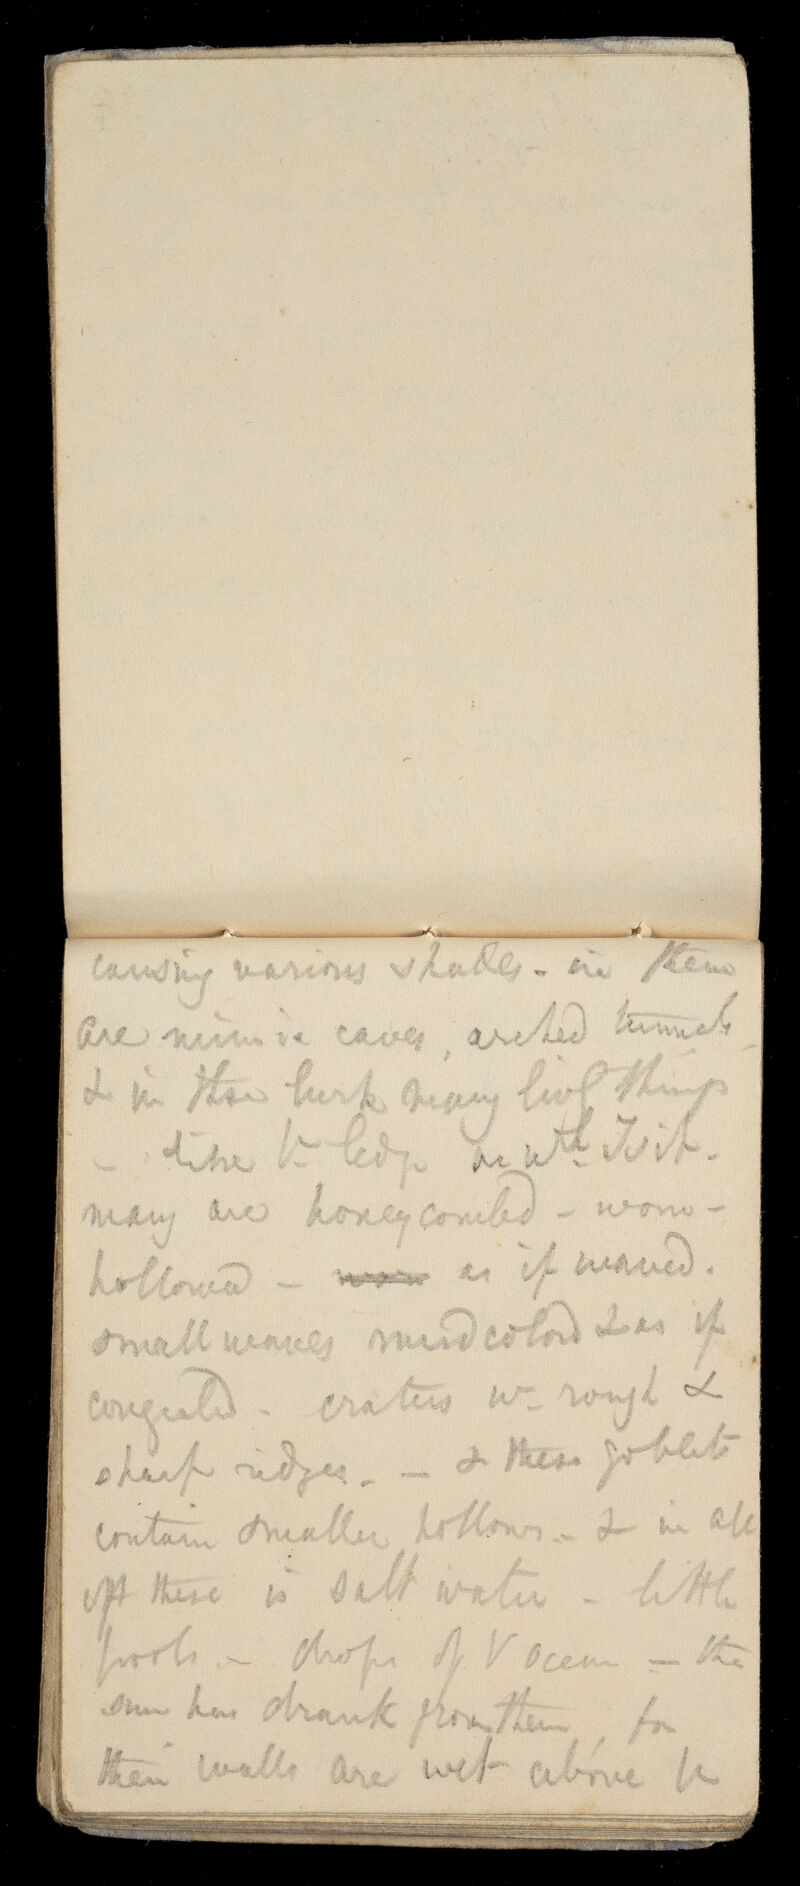 causing various shades - in them
are mimic caves, arched tunnels
& in these lurk many livg things
- like ledge on wh I sit.
many are honeycombed - worn -
hollowed - as if waved.
small waves mudcolord & as if
congealed - craters w- rough &
sharp ridges. - & these goblets
contain smaller hollows - & in all
off these is salt water - little
pools - drops of V ocean - the
sun has drank from them, for
their walls are wet above